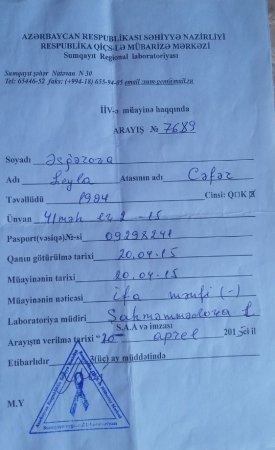 AZƏRBAYCAN RESPUBLİKASI SƏHİYYƏ NAZİRLİYİ
RESPUBLİKA QİÇS-LƏ MÜBARİZƏ MƏRKƏZİ
Sumqayıt Regional laboratoriyası
Sumqayıt şəhər Natəvan N 30
Tel: 65446-52 faks: (+994-18) 655-94-05
HİV-ə müayinə haqqında
ARAYIŞ № 7689
Soyadı Əsgərova
Adı Leyla Atasının adı Cəfər
Təvəllüdü 1984 Cinsi: Q K
Ünvan 41 məh 15
Pasport(vəsiqə)№-si 09298241
Qanın götürülmə tarixi 20.04.15
Müayinənin tarixi 20.04.15
Müayinənin nəticəsi ifa mənfi (-)
Laboratoriya müdiri Şahməmmədova L
S.A.A və imzası
Arayışın verilmə tarixi "20" aprel 2015 il
Etibarlıdır 3(üç) ay müddətində
M.Y